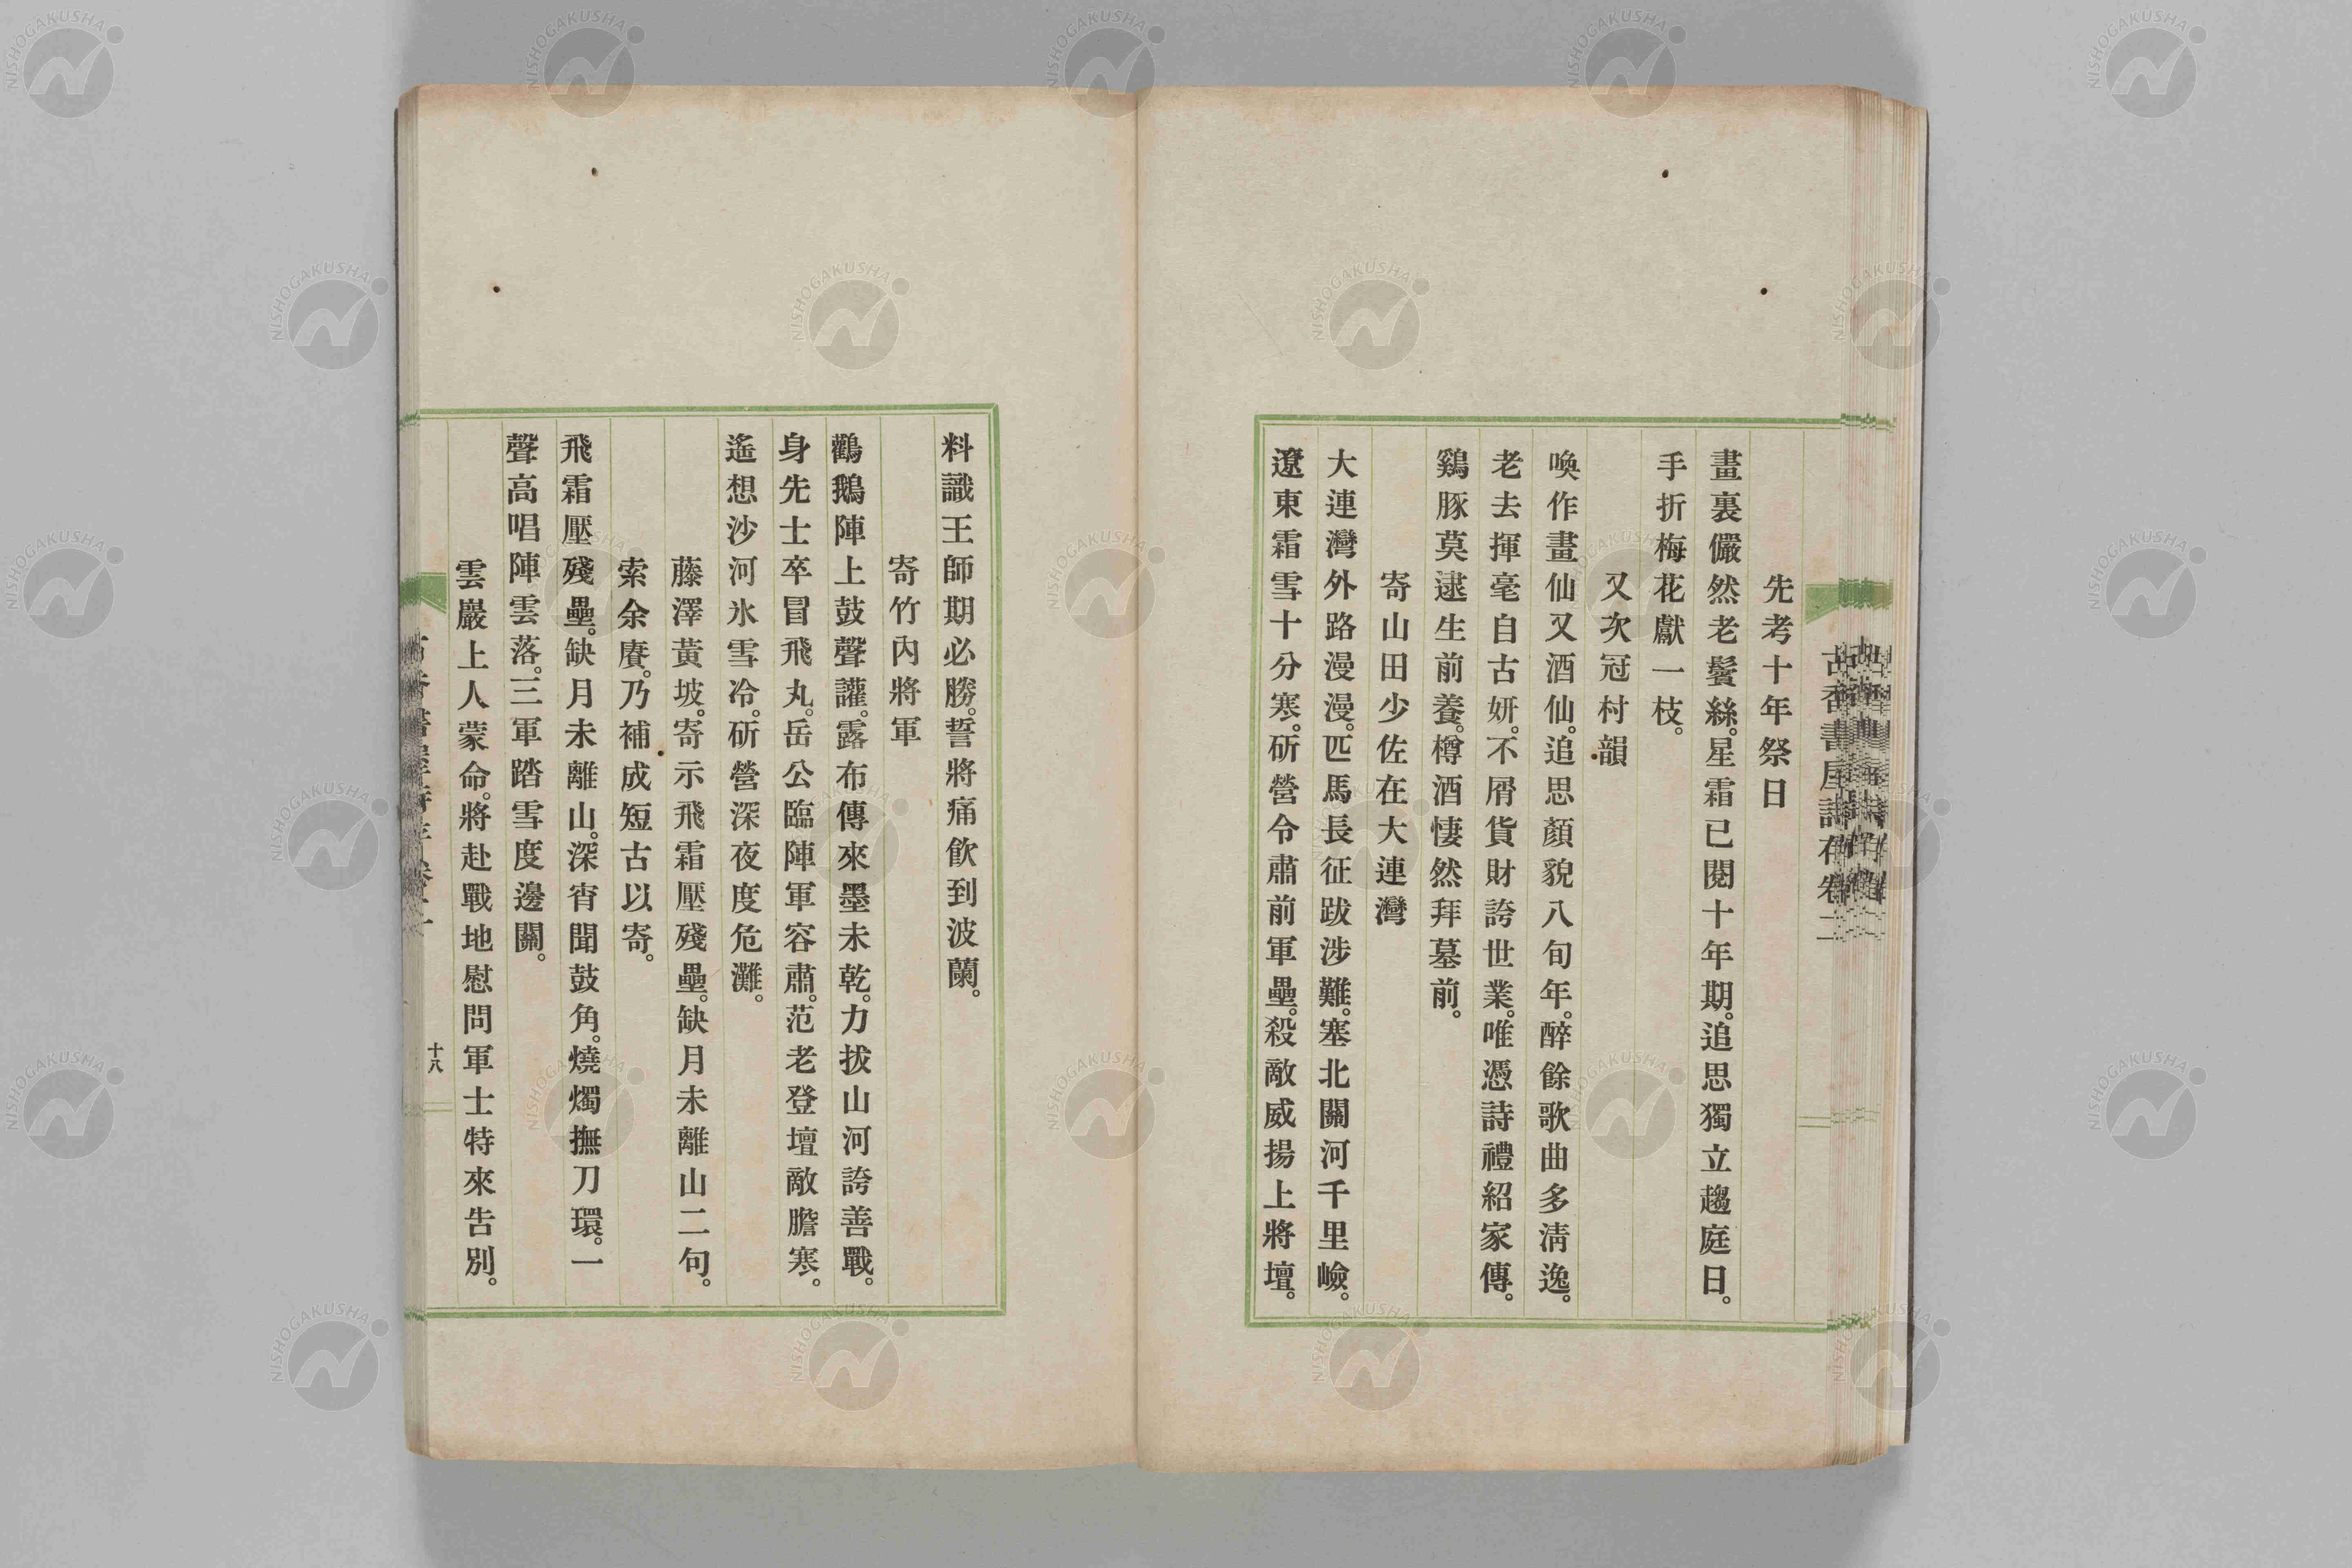 先考十年祭日
畫裏儼然老鬢絲。星霜已閱十年期。追思獨立趨庭日。
手折梅花獻一枝。
又次冠村韻
喚作畫仙又酒仙。追思顏貌八旬年。醉餘歌曲多淸逸。
老去揮毫自古妍。不屑貨財誇世業。唯憑詩禮紹家傳。
鷄豚莫逮生前養。樽酒悽然拜墓前。
寄山田少佐在大連灣
大連灣外路漫漫。匹馬長征跋涉難。塞北關河千里嶮。
遼東霜雪十分寒。斫營令肅前軍壘。殺敵威揚上將壇。
料識王師期必勝。誓將痛飮到波蘭。
寄竹內將軍
鸛鵝陣上鼓聲讙。露布傳來墨未乾。力拔山河誇善戰。
身先士卒冒飛丸。岳公臨陣軍容肅。范老登壇敵膽寒。
遙想沙河氷雪冷。斫營深夜度危灘。
藤澤黃坡。寄示飛霜壓殘壘。缺月未離山二句。
索余賡。乃補成短古以寄。
飛霜壓殘壘。缺月未離山。深宵聞鼓角。燒燭撫刀環。一
聲高唱陣雲落。三軍踏雪度邊關。
雲巖上人蒙命。將赴戰地慰問軍士特來告別。
十八
古香書屋詩存卷二
NISHOGAKUSHA